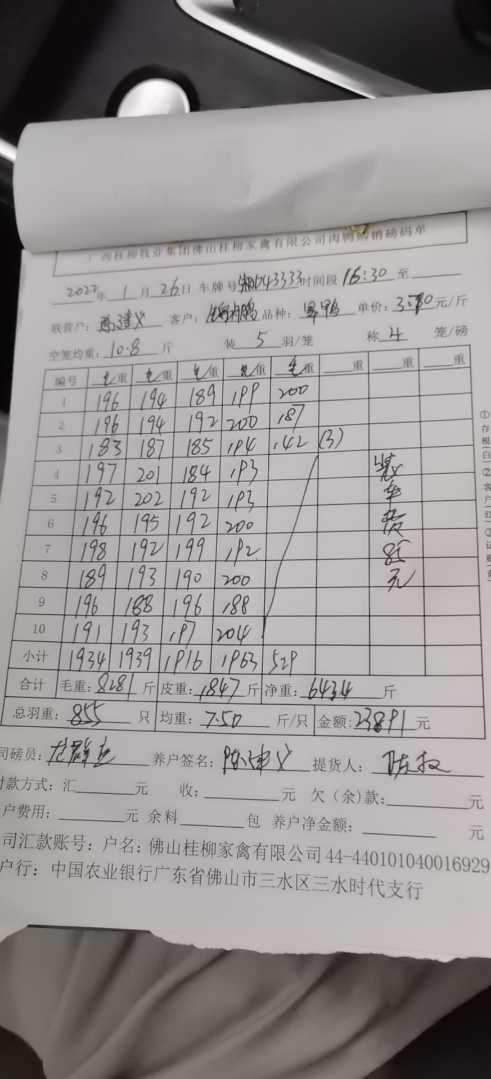 西桂柳牧业集团佛山桂柳家禽有限公司肉鸭购销磅码单
2022年 1月26日 车牌号 643333 时间段 16:30 至
联营户: 客户: 品种: 单价: 元/斤
空笼均重: 10.8 斤 装 5 羽/笼 称 4 笼/磅
编号 毛重 毛重 毛重 毛重 毛重 重 重 重
1 196 194 189 199 200
2 196 194 192 200 187
3 183 187 185 194 142 (3)
4 197 201 184 193
5 192 202 192 193
6 196 195 192 200
7 198 192 199 192
8 189 193 190 200
9 196 188 196 188
10 191 193 197 204
小计 1934 1939 1916 1963 529
装车费 元
合计 毛重: 8281 斤 皮重: 1847 斤 净重: 6434 斤
总羽重: 855 只 均重: 7.50 斤/只 金额: 23891 元
司磅员: 养户签名: 提货人:
付款方式: 汇 元 收: 元 欠(余)款: 元
户费用: 元 余料 包 养户净金额: 元
司汇款账号: 户名: 佛山桂柳家禽有限公司 44-440101040016929
户行: 中国农业银行广东省佛山市三水区三水时代支行
①存根(白)②客户(红)③